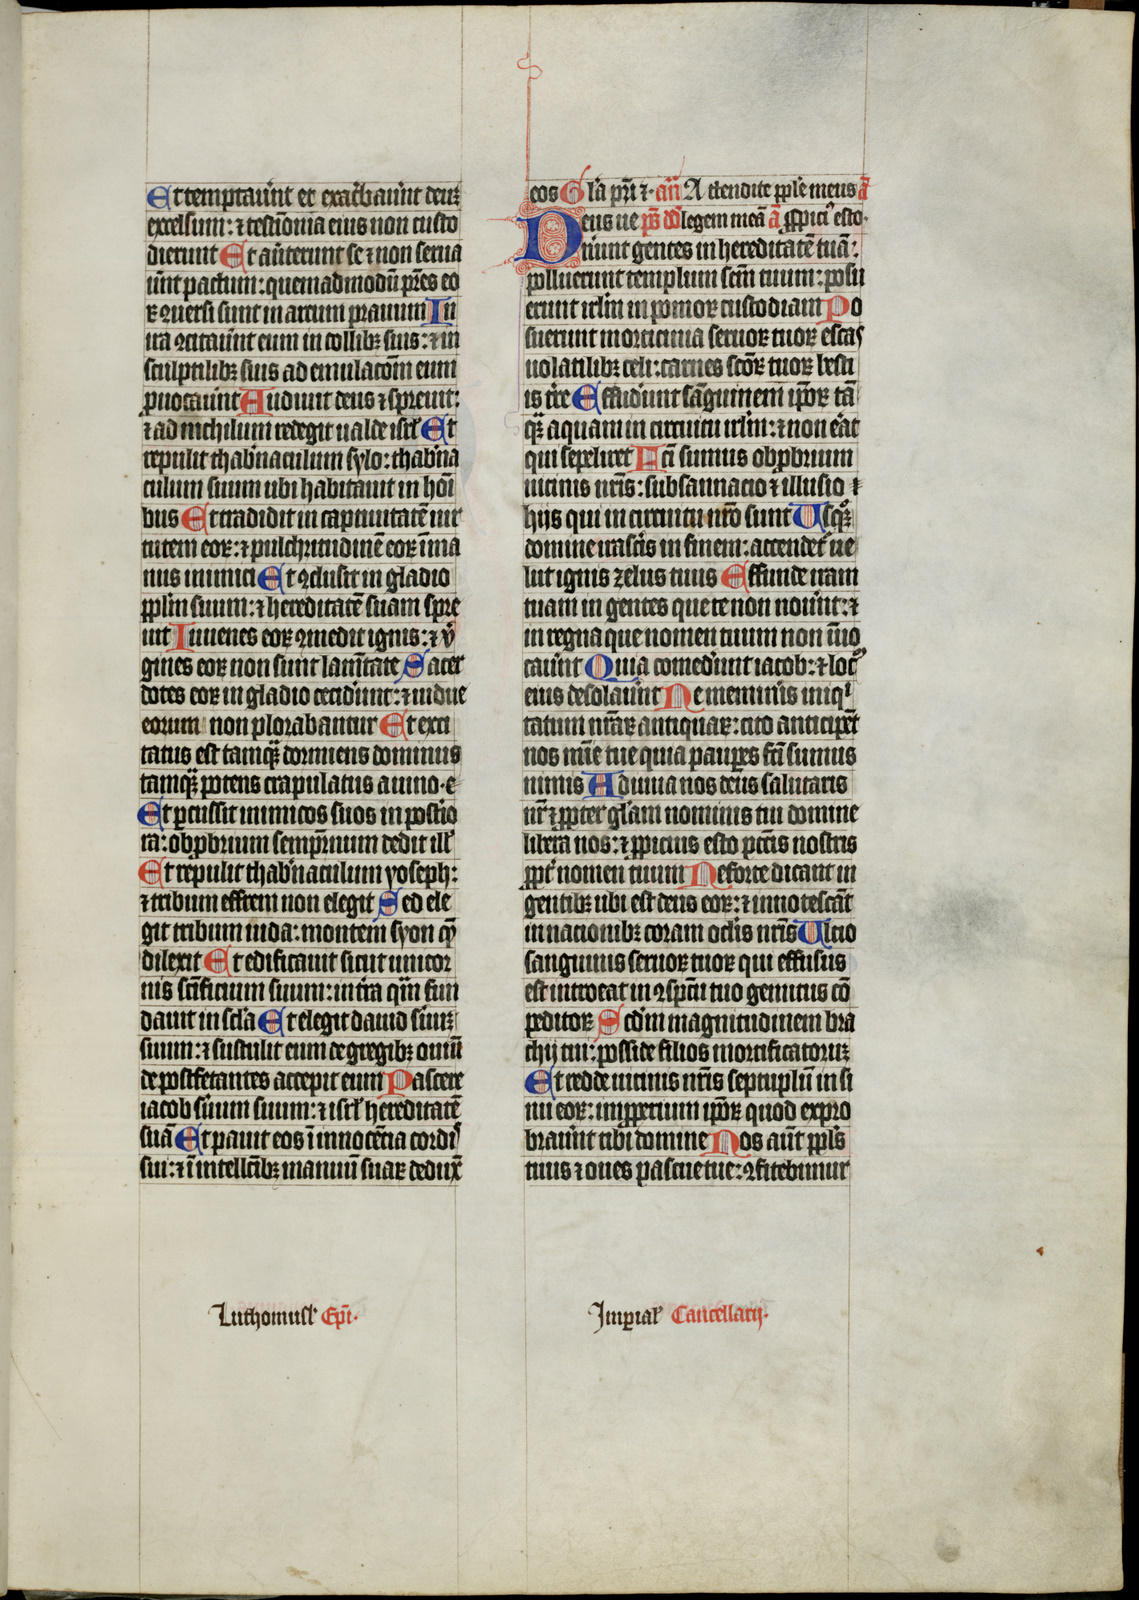 Et temptaue͛nt et exac͛baue͛nt deuꝫ
excelsum: ⁊ testi͛onia eius non custo
dierunt Et aue͛terunt se ⁊ non serua
ue͛nt pactum: quemadmodū pr̄es eo
ꝝ ꝯuersi sunt in arcum prauum In
ira ꝯcitaue͛nt eum in collibꝫ suis: ⁊ in
sculptilibꝫ suis ad emulacōm eum
ꝓuocaue͛nt Audiuit deus ⁊ spreuit:
⁊ ad nichilum redegit ualde isrl̄ Et
repulit thab͛naculum sylo: thab͛na
culum suum ubi habitauit in hoı̄
bus Et tradidit in captiuitatē uir
tutem eoꝝ: ⁊ pulchritudinē eoꝝ ī ma
nus inimici Et ꝯclusit in gladio
ppl̄m suum: ⁊ hereditatē suam spre
uit Iuuenes eoꝝ ꝯmedit ignis: ⁊ v͛
gines eoꝝ non sunt lam̄tate Sacer
dotes eoꝝ in gladio cecide͛unt: ⁊ uidue
eorum non plorabantur Et exci
tatus est tamqꝫ dormiens dominus
tamqꝫ potens crapulatus a uino·
Et ꝑcussit inimicos suos in posti͛o
ra: obꝓbrium sempi͛num dedit ill̄
Et repulit thab͛naculum yoseph:
⁊ tribum effrem non elegit Sed ele
git tribum iuda: montem syon qͣ̄
dilexit Et edificauit sicut unicor
nis scīficium suum: in tr̄a qͣm fun
dauit in scl̄a Et elegit dauid ser̄uꝫ
suum: ⁊ sustulit eum de gregibꝫ ouiū
de postfetantes accepit eum Pascere
iacob ser̄uum suum: ⁊ isrl̄ hereditatē
suā Et pauit eos ī innocēcia cordis
sui: ⁊ ī intellc̄ibꝫ manuū suaꝝ deduxͭ
eos Gl̄a pr̄i ⁊· an̄ Attendite pplē meus a̅
Deus ue ps̄ dd̄ legem meā a̅ ꝓpiciꝰ esto·
ne͛runt gentes in hereditatē tuā:
polluerunt templum scm̄ tuum: posu
erunt irlm̄ in pomoꝝ custodiam Po
suerunt morticinia seruoꝝ tuoꝝ escas
uolatilibꝫ celi: carnes scōꝝ tuoꝝ besti
is tr̄e Effude͛unt sāguinem ip̄oꝝ tā
qꝫ aquam in circuitu irlm̄: ⁊ non erāt
qui sepeliret Fc̄i sumus obꝓbrium
uicinis nr̄is: subsannacio ⁊ illusio
hijs qui in circuitu nr̄o sunt Usqꝫqͦ
domine irascer̄is in finem: accendet͛ ue
lut ignis zelus tuus Effunde iram
tuam in gentes que te non noue͛nt: ⁊
in regna que nomen tuum non īuo
caue͛nt Quia comede͛unt iacob: ⁊ locū
eius desolaue͛nt Ne memine͛is iniqͥ
tatum nr̄aꝝ antiquaꝝ: cito anticipēt
nos mīe tue quia pauꝑes fc̄i sumus
nimis Adiuua nos deus salutaris
nr̄ ⁊ ꝓpter gl̄am nominis tui domine
libera nos: ⁊ ꝓpicius esto pcc̄is nostris
ꝓpt͛ nomen tuum Ne forte dicant in
gentibꝫ ubi est deus eoꝝ: ⁊ innotescāt
in nacionibꝫ coram ocl̄is nr̄is Ulcio
sanguinis seruoꝝ tuoꝝ qui effusus
est introeat in ꝯspc̄u tuo gemitus cō
peditoꝝ Scdm̄ magnitudinem bra
chij tui: posside filios mortificatoruꝫ
Et redde uicinis nr̄is septuplū in si
nu eoꝝ: imꝓperium ip̄oꝝ quod expro
braue͛nt tibi domine Nos aut̄ ppl̄s
tuus ⁊ oues pascue tue: ꝯfitebimur
Luthomusl̄· Epı̄·
Imꝑial̄ Cancellarij·